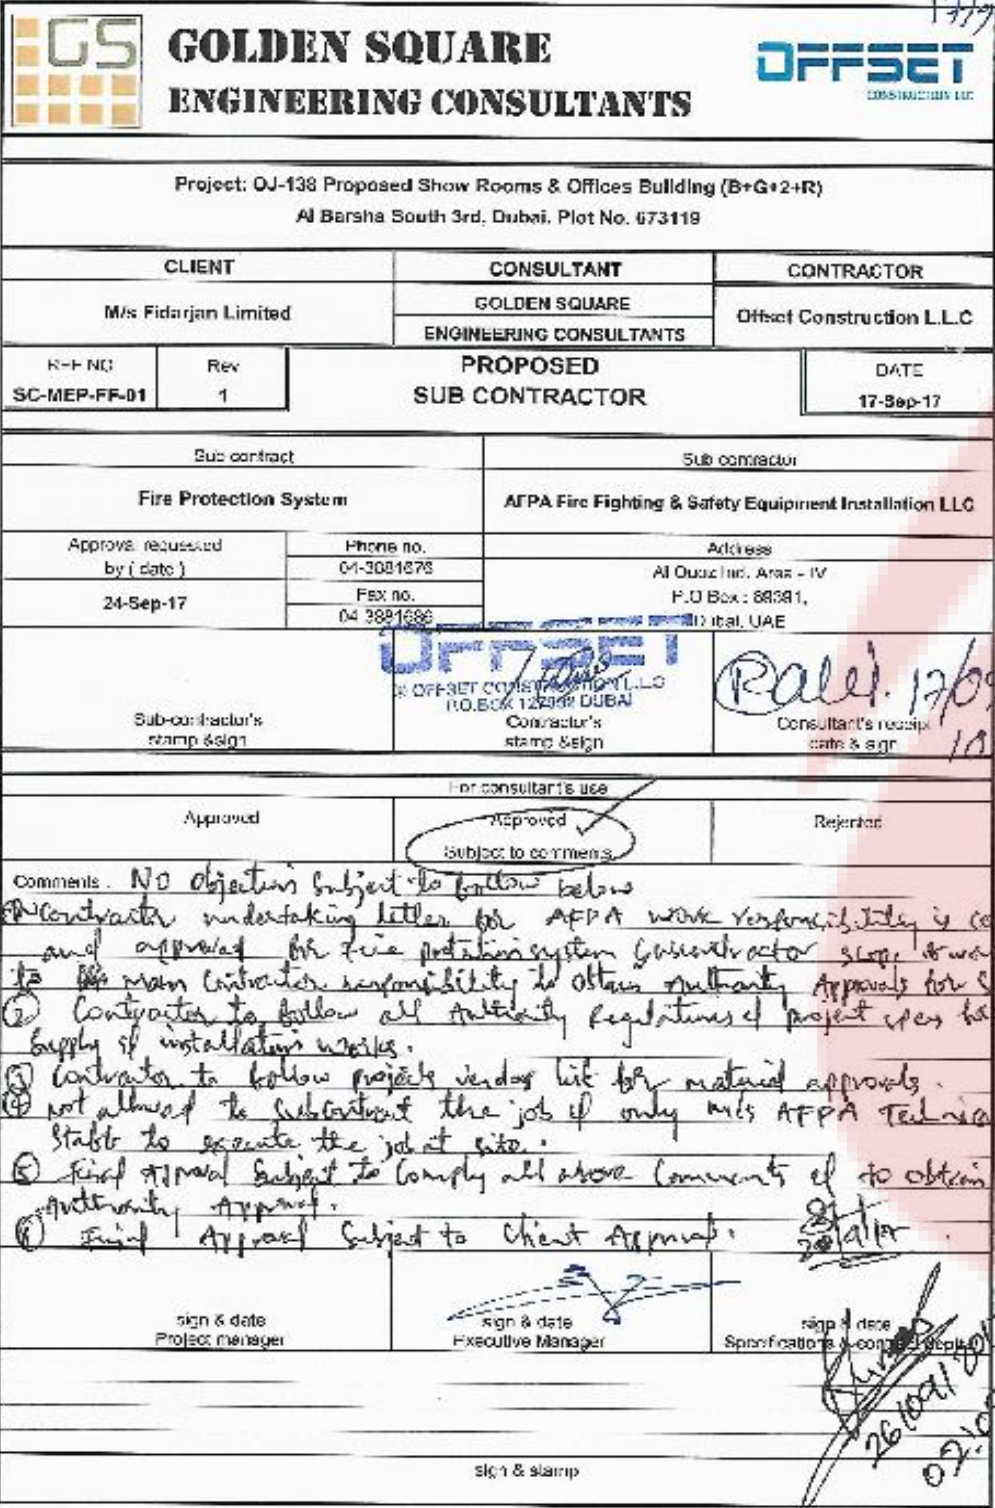 GS
GOLDEN SQUARE
ENGINEERING CONSULTANTS
OFFSET
CONSTRUCTION LLC
Project: OJ-138 Proposed Show Rooms & Offices Building (B+G+2+R)
Al Barsha South 3rd, Dubai, Plot No. 673119
CLIENT
CONSULTANT
CONTRACTOR
M/s Fidarjan Limited
GOLDEN SQUARE
ENGINEERING CONSULTANTS
Offset Construction L.L.C
REF NO
Rev
PROPOSED
SUB CONTRACTOR
DATE
SC-MEP-FF-01
1
17-Sep-17
Sub contract
Sub contractor
Fire Protection System
AFPA Fire Fighting & Safety Equipment Installation LLC
Approval requested
by ( date )
Phone no.
Address
24-Sep-17
Fax no.
Al Quoz Ind. Area - IV
P.O Box :
Dubai, UAE
OFFSET
OFFSET CONSTRUCTION L.L.C
P.O.BOX DUBAI
17/09
Sub-contractor's
stamp &sign
Contractor's
stamp &sign
Consultant's receipt
date & sign
For consultant's use
Approved
Approved
Subject to comments
Rejected
Comments : NO Objection Subject to follow below
Contractor undertaking letter for AFPA work responsibility is
and approval for Fire protection system Subcontractor scope of
to main Contractor responsibility to obtain Authority Approvals for
② Contractor to follow all Authority Regulations & project
Supply & installation works.
③ Contractor to follow projects vendor list for material approvals.
④ not allowed to Subcontract the job & only M/s AFPA
Staff to execute the job at site.
⑤ Final Approval Subject to Comply all above Comments & to obtain
Authority Approval.
⑥ Final Approval Subject to Client Approval.
sign & date
Project manager
sign & date
Executive Manager
sign & date
Specifications &
sign & stamp